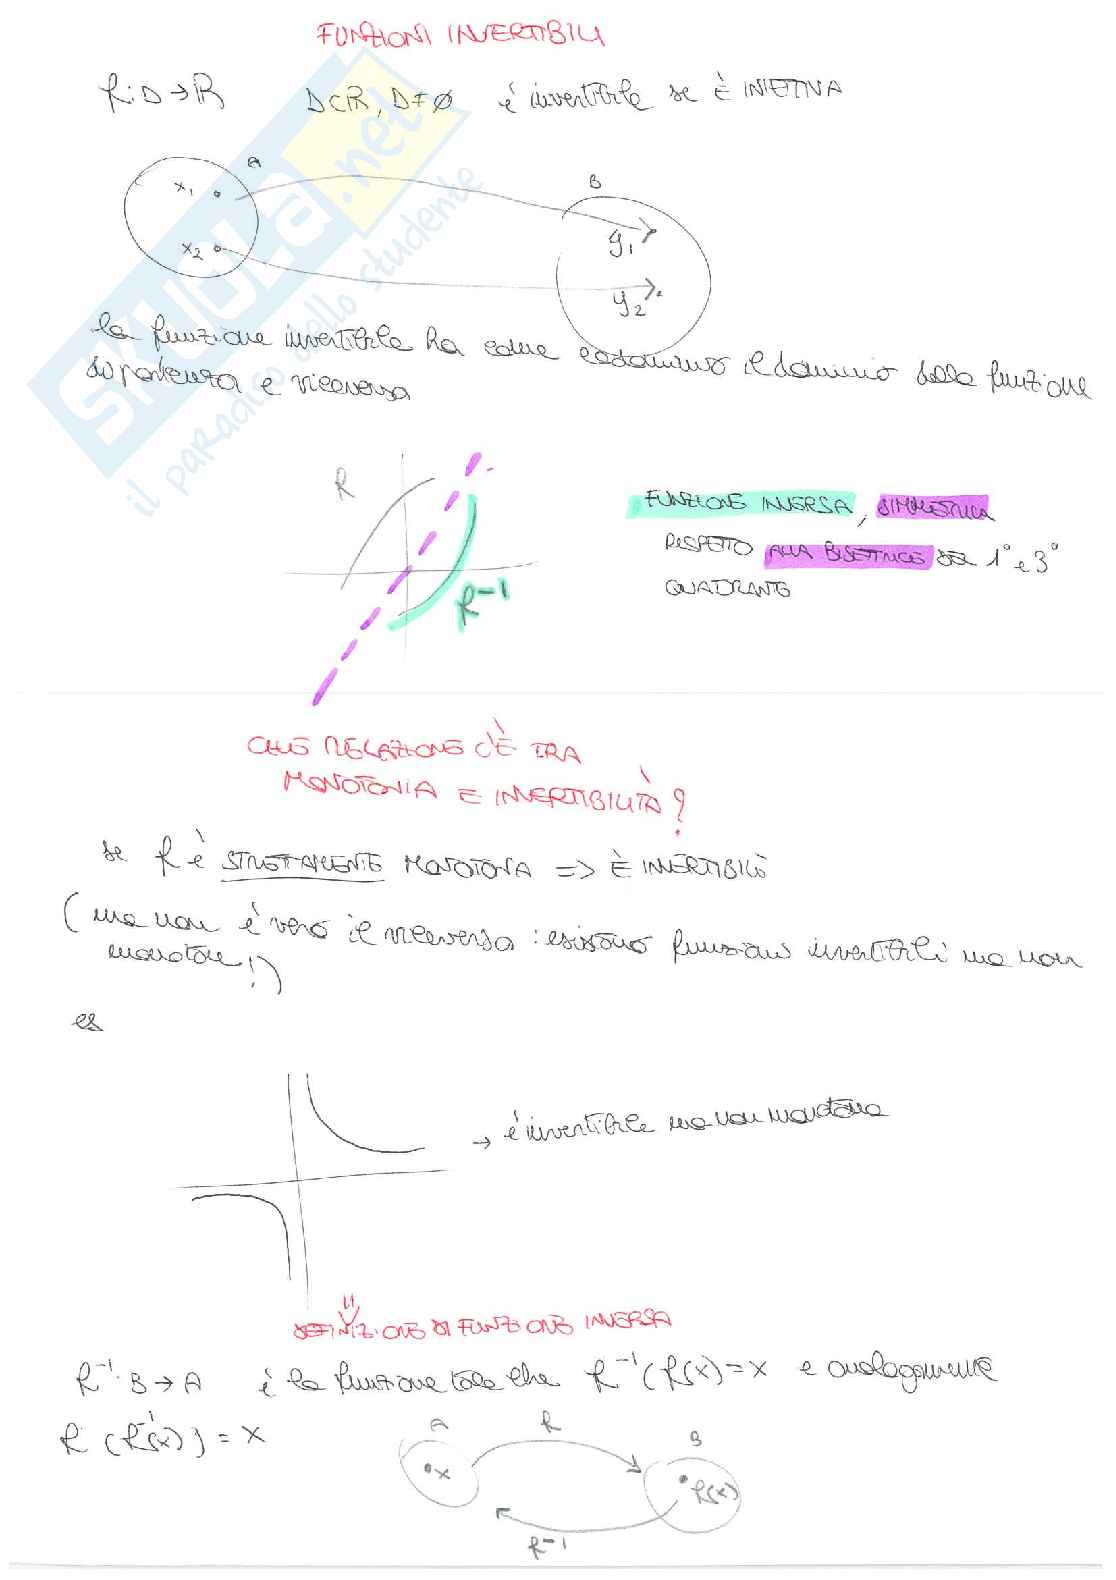 FUNZIONI INVERTIBILI
f: D → R D⊂R, D≠∅ é invertibile se È INIETTIVA
A
B
x1
x2
y1
y2
la funzione invertibile ha come codominio il dominio della funzione
di partenza e viceversa
f
f⁻¹
FUNZIONE INVERSA, SIMMETRICA
RISPETTO ALLA BISETTRICE DEL 1° e 3°
QUADRANTE
CHE RELAZIONE C'È TRA
MONOTONIA E INVERTIBILITÀ?
se f è STRETTAMENTE MONOTONA => È INVERTIBILE
(ma non é vero il viceversa: esistono funzioni invertibili ma non
monotone!)
es
→ é invertibile ma non monotona
DEFINIZIONE DI FUNZIONE INVERSA
f⁻¹: B → A é la funzione tale che f⁻¹(f(x)) = x e analogamente
f (f⁻¹(x)) = x
A
f
B
x
f(x)
f⁻¹
SKUOLA.net
il paradiso dello studente